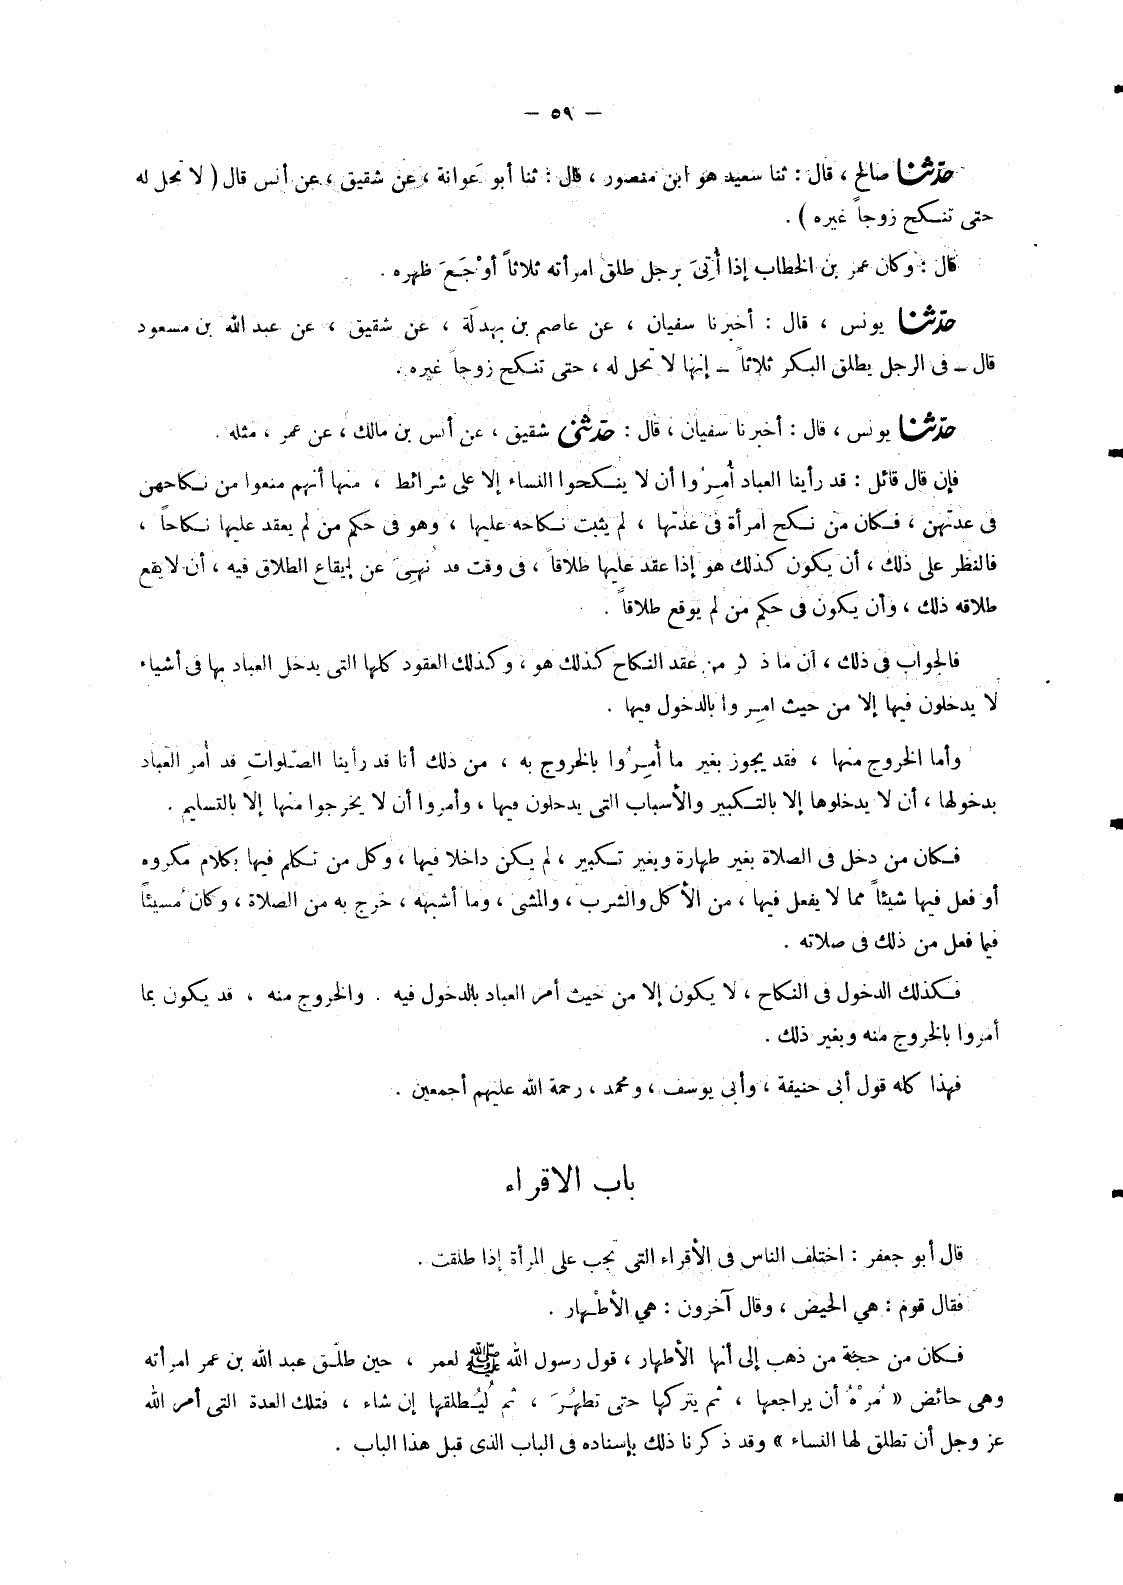 — ٥٩ —
حدثنا صالح ، قال : ثنا سعيد هو ابن منصور ، قال : ثنا أبو عَوانة ، عن شقيق ، عن أنس قال ( لا تحل له
حتى تنكح زوجاً غيره ) .
قال : وكان عمر بن الخطاب إذا أُتِىَ برجل طلق امرأته ثلاثاً أوْجَعَ ظهره .
حدثنا يونس ، قال : أخبرنا سفيان ، عن عاصم بن بهدلَة ، عن شقيق ، عن عبد الله بن مسعود
قال ـ فى الرجل يطلق البكر ثلاثاً ـ إنها لا تحل له ، حتى تنكح زوجاً غيره .
حدثنا يونس ، قال : أخبرنا سفيان ، قال : حدثنى شقيق ، عن أنس بن مالك ، عن عمر ، مثله .
فإن قال قائل : قد رأينا العباد أُمِرُوا أن لا ينكحوا النساء إلا على شرائط ، منها أنهم منعوا من نكاحهن
فى عدتهن ، فكان من نكح امرأة فى عدتها ، لم يثبت نكاحه عليها ، وهو فى حكم من لم يعقد عليها نكاحاً ،
فالنظر على ذلك ، أن يكون كذلك هو إذا عقد عليها طلاقاً ، فى وقت قد نُهِىَ عن إيقاع الطلاق فيه ، أن لا يقع
طلاقه ذلك ، وأن يكون فى حكم من لم يوقع طلاقاً .
فالجواب فى ذلك ، أن ما ذ كر من عقد النكاح كذلك هو ، وكذلك العقود كلها التى يدخل العباد بها فى أشياء
لا يدخلون فيها إلا من حيث امروا بالدخول فيها .
وأما الخروج منها ، فقد يجوز بغير ما أُمِرُوا بالخروج به ، من ذلك أنا قد رأينا الصّلواتِ قد أُمر العباد
بدخولها ، أن لا يدخلوها إلا بالتكبير والأسباب التى يدخلون فيها ، وأمروا أن لا يخرجوا منها إلا بالتسليم .
فكان من دخل فى الصلاة بغير طهارة وبغير تكبير ، لم يكن داخلا فيها ، وكل من تكلم فيها بكلام مكروه
أو فعل فيها شيئاً مما لا يفعل فيها ، من الأكل والشرب ، والمشى ، وما أشبهه ، خرج به من الصلاة ، وكان مُسيئاً
فيما فعل من ذلك فى صلاته .
فكذلك الدخول فى النكاح ، لا يكون إلا من حيث أمر العباد بالدخول فيه . والخروج منه ، قد يكون بما
أمروا بالخروج منه وبغير ذلك .
فهذا كله قول أبى حنيفة ، وأبى يوسف ، ومحمد ، رحمة الله عليهم أجمعين .
باب الاقراء
قال أبو جعفر : اختلف الناس فى الأقراء التى تجب على المرأة إذا طلقت .
فقال قوم : هي الحيض ، وقال آخرون : هي الأطْهار .
فكان من حجة من ذهب إلى أنها الأطهار ، قول رسول الله ﷺ لعمر ، حين طلّق عبد الله بن عمر امرأته
وهى حائض « مُرْهُ أن يراجعها ، ثم يتركها حتى تطهُرَ ، ثم لْيُطلقها إن شاء ، فتلك العدة التى أمر الله
عز وجل أن تطلق لها النساء » وقد ذكرنا ذلك بإسناده فى الباب الذى قبل هذا الباب .